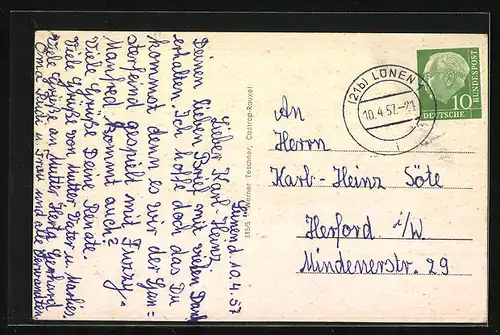 Lünen d. 10.4.57
Lieber Karl-Heinz.
Deinen lieben Brief mit vielen Dank
erhalten. Ich hoffe doch das Du
kommst denn es wir der Gun=
stersend gespielt mit Fuzzy.
Manfred kommt auch?
Viele Grüße Deine Renate.
Viele Grüße von Mutter Vater u.
Viele Grüße an Mutter Herta Gerhard
Oma und Frau und alle Verwandten
3155 Werner Teschner, Castrop-Rauxel
(21b) LÜNEN
10.4.57.-21
i
10
DEUTSCHE
BUNDESPOST
An
Herrn
Karl-Heinz Söte
Herford i/W
Mindenerstr. 29